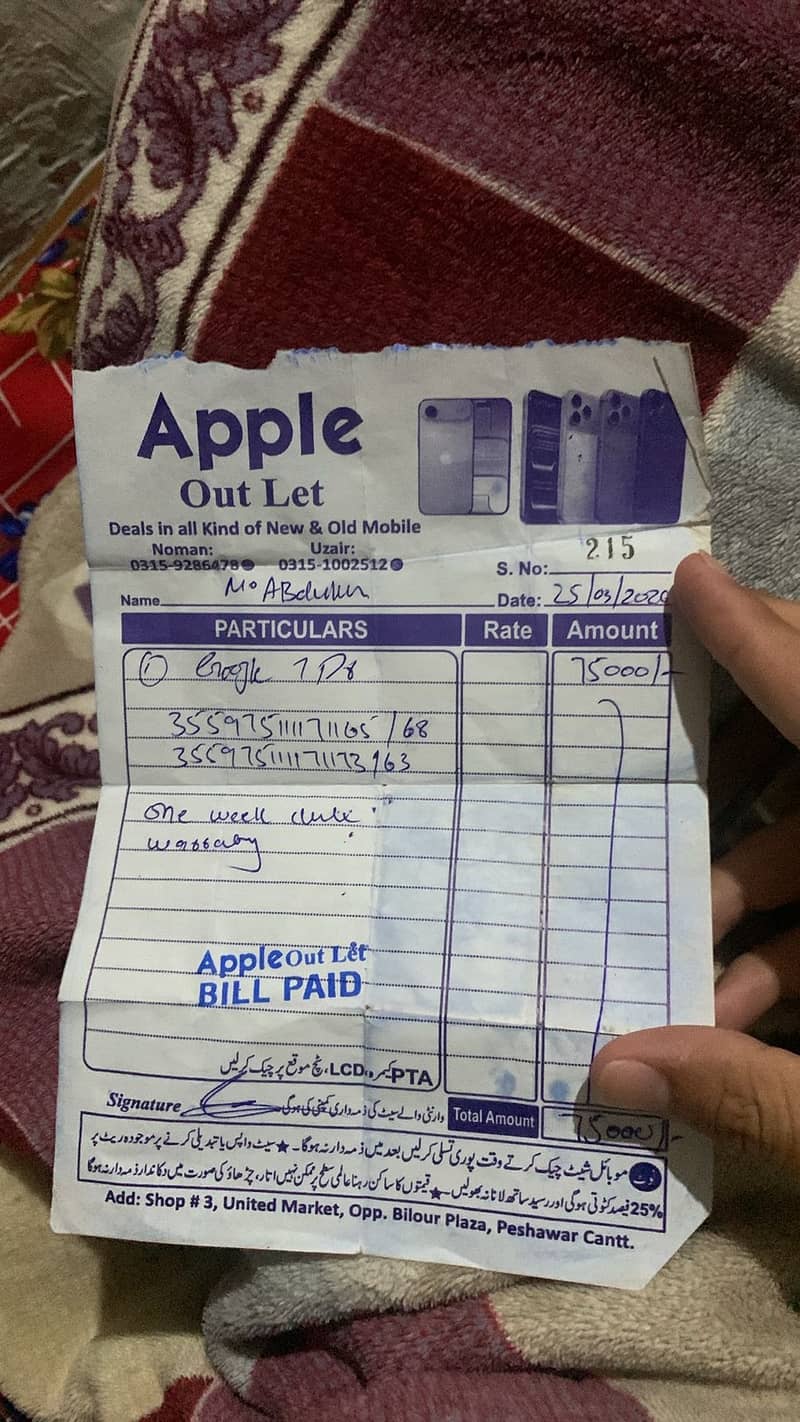 Apple
Out Let
Deals in all Kind of New & Old Mobile
Noman: Uzair:
0315-9286478 0315-1002512
S. No: 215
Name
Date: 25/03/202
PARTICULARS Rate Amount
① 7 75000/-
355975111171165/68
355975111171173/63
One week
Apple Out Let
BILL PAID
PTA، کیمرہ، LCD، ٹچ موقع پر چیک کرلیں
وارنٹی والے سیٹ کی ذمہ داری کمپنی کی ہوگی
Signature
Total Amount 75000/-
نوٹ موبائل شیٹ چیک کرتے وقت پوری تسلی کرلیں بعد میں ذمہ دار نہ ہوگا۔ ★ سیٹ واپس یا تبدیلی کرنے پر موجودہ ریٹ پر
25% فیصد کٹوتی ہوگی اور رسید ساتھ لانا نہ بھولیں۔ ★ قیمتوں کا ساکن رہنا عالمی سطح پر ممکن نہیں اتار، چڑھاؤ کی صورت میں دکاندار ذمہ دار نہ ہوگا
Add: Shop # 3, United Market, Opp. Bilour Plaza, Peshawar Cantt.